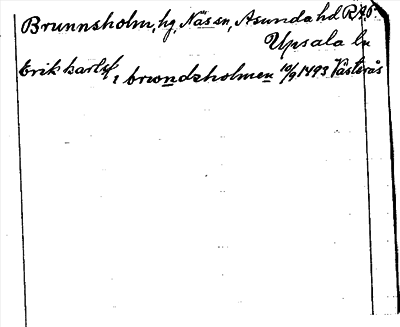 Brunnsholm, hg, Näs sn, Asunda hd RAp.
Upsala ln
Erik karlss. i brwondzholmen 10/9 1493 Västerås